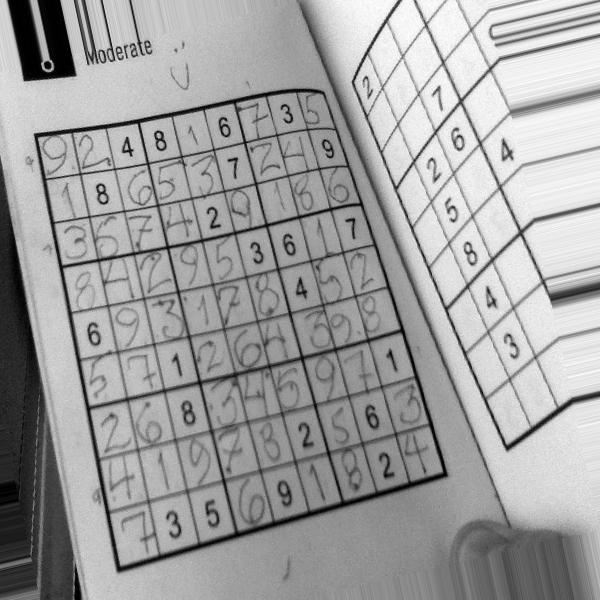 Moderate
9 2 4 8 1 6 7 3 5
1 8 6 5 3 7 2 4 9
3 5 7 4 2 9 1 8 6
8 4 2 9 5 3 6 1 7
6 9 3 1 7 8 4 5 2
5 7 1 2 6 4 3 9 8
2 6 8 3 4 5 9 7 1
4 1 9 7 8 2 5 6 3
7 3 5 6 9 1 8 2 4
2
7
2 6 4
5
8
4
3